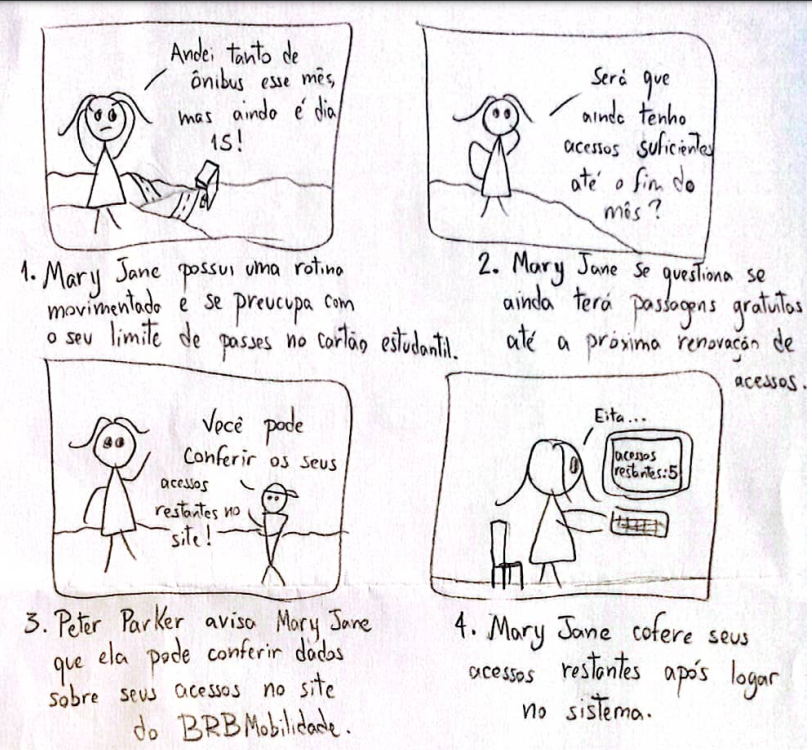 Andei tanto de
ônibus esse mês,
mas ainda é dia
15!
1. Mary Jane possui uma rotina
movimentada e se preucupa com
o seu limite de passes no cartão estudantil.
Será que
ainda tenho
acessos suficientes
até o fim do
mês?
2. Mary Jane se questiona se
ainda terá passagens gratuitas
até a próxima renovação de
acessos.
Você pode
conferir os seus
acessos
restantes no
site!
3. Peter Parker avisa Mary Jane
que ela pode conferir dados
sobre seus acessos no site
do BRBMobilidade.
Eita...
acessos
restantes:5
4. Mary Jane cofere seus
acessos restantes após logar
no sistema.